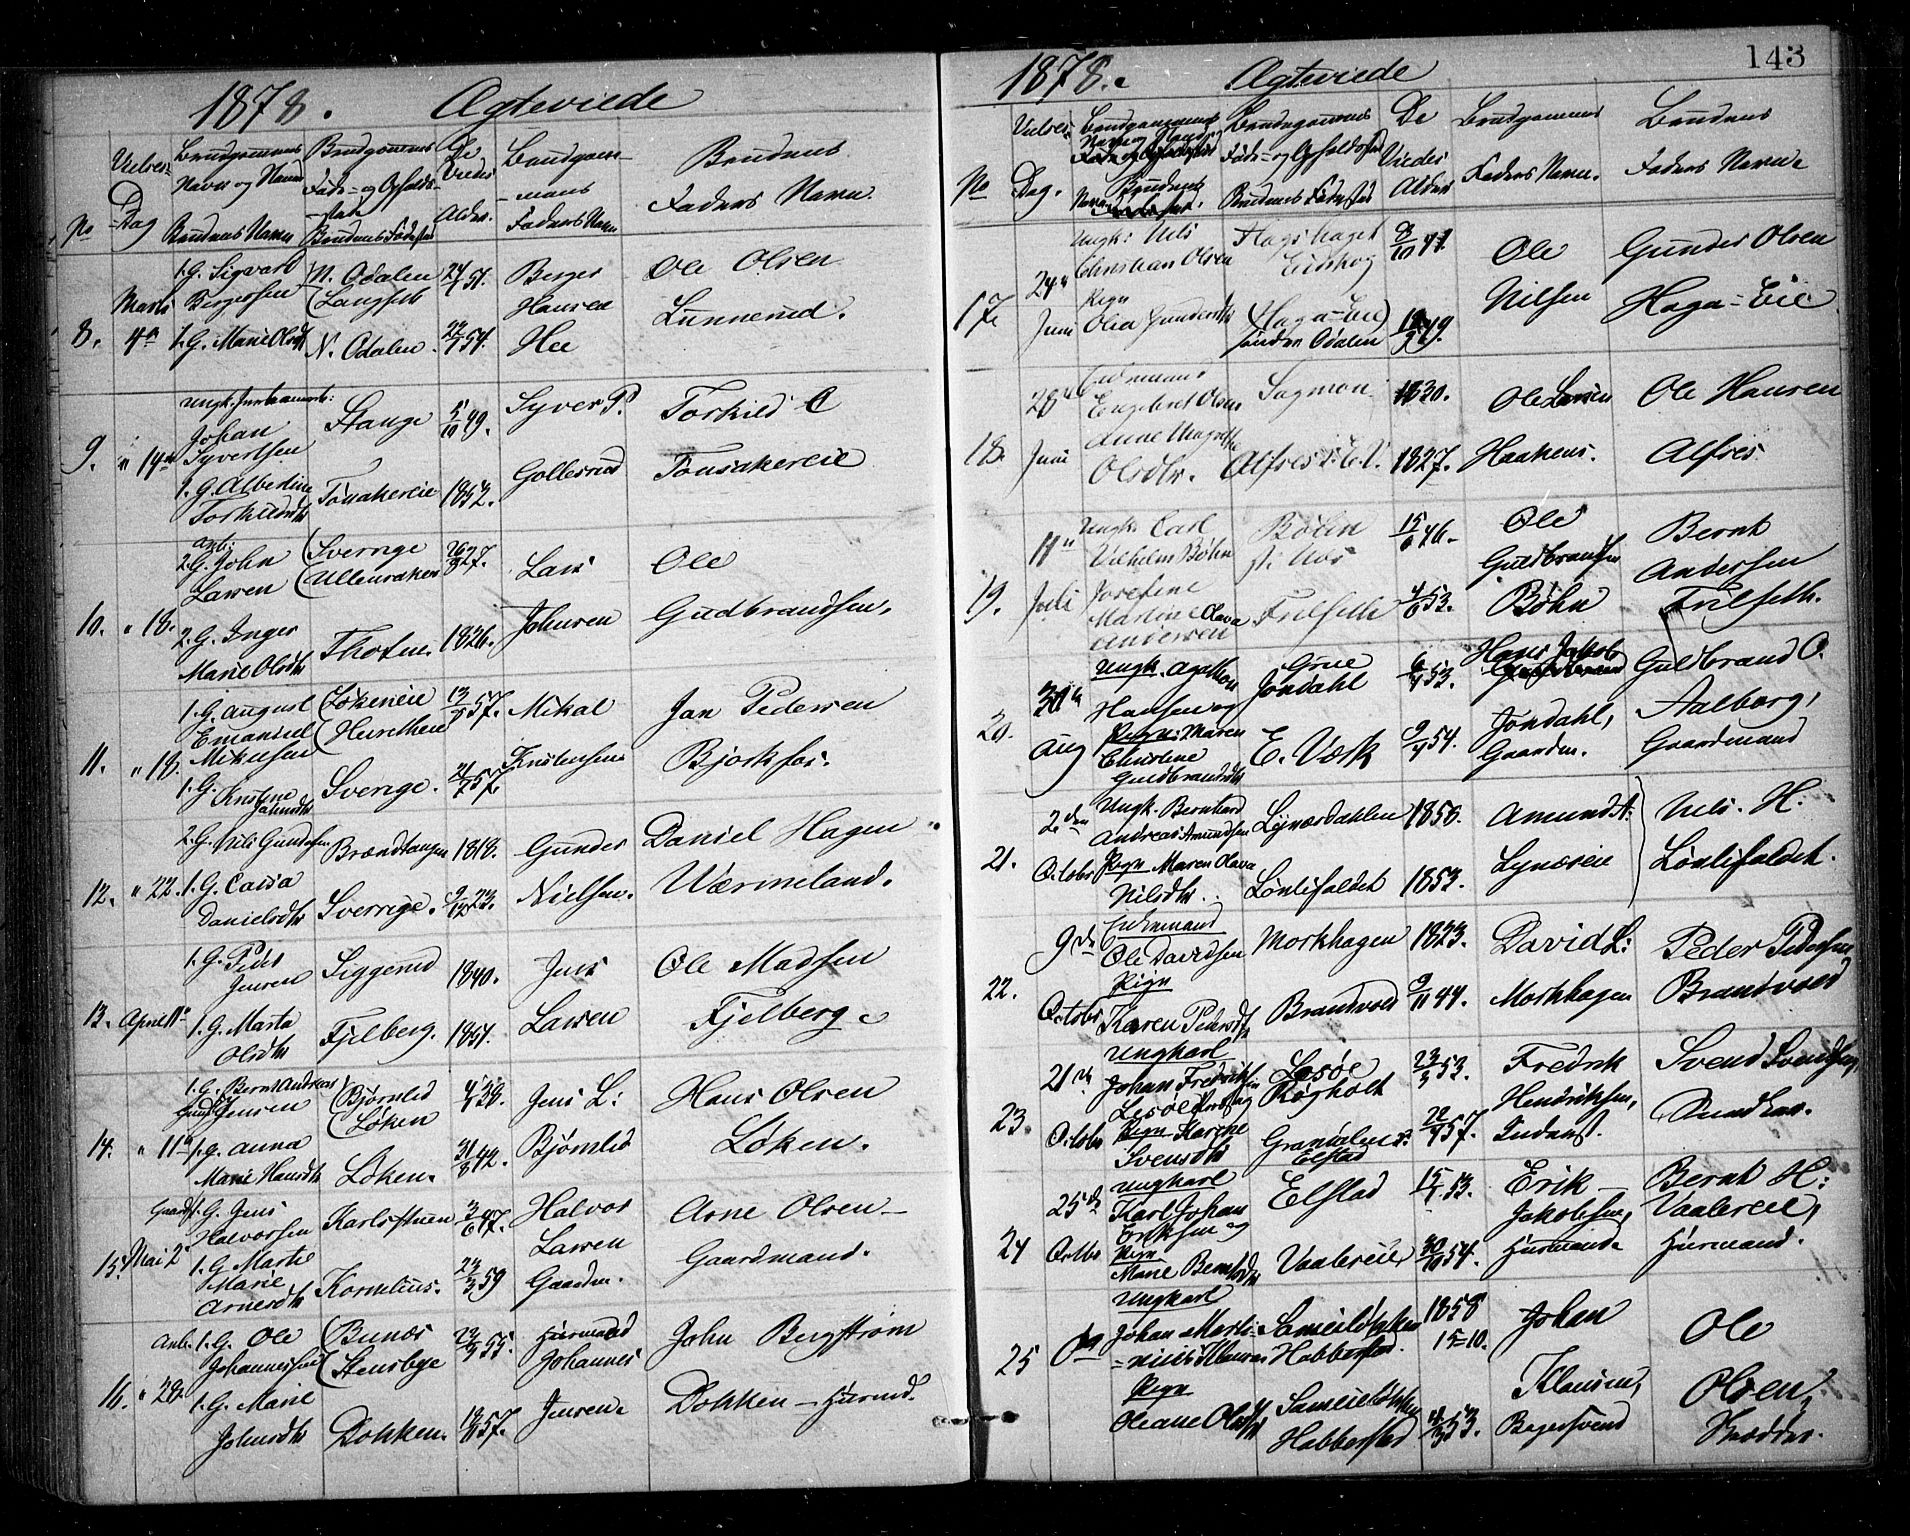 1878. Ægteviede
No
Vielses-
Dag
Brudgommens
Navn og
Brudens Navn
Brudgommens
Føde- og Opholds-
-sted
Brudens Fødested
De
Viedes
Alder.
Brudgom-
-mens
Faders Navn
Brudens
Faders Navn.
8. Marts 4de
1. G. Sigvard
Bergersen
1. G. Marie Olsdtr
N. Odalen
Langseth
N. Odalen.
24/ 51.
22/ 54.
Berger
Hansen
Hee
Ole Olsen
Lunnerud.
9. " 14de
Johan
Syvertsen
1. G. Albertine
Torkildsdtr
Stange
Tonsakereie
5/10 49.
1852.
Syver P.
Gollerud
Torkild
Tonsakereie
10. " 18.
arb:
2. G. John
Larsen
2. G. Inger
Marie Olsdtr
Sverrige
Ullensaker
Thoten.
26/8 27.
1826.
Lars
Johnsen
Ole
Gudbrandsen.
11. " 18.
1. G. August
Emanuel
Mikelsen
1. G.
Kristine
Jansdtr
Løkeneie
Sverige.
13/ 57.
21/7 57.
Mikal
Kristensen
Jan Pedersen
Bjorkfos.
12. " 22.
2. G. Nils Gundersen
1. G. Caisa
Danielsdtr
Brændtangen
Sverrige.
1818.
9/12 23.
Gunder
Nielsen.
Daniel Hagen
Wærmeland.
13. April 11te
1. G. Peder
Jensen
1. G. Marta
Olsdtr
Siggerud
Fjelberg.
1840.
1851.
Jens
Larsen
Ole Madsen
Fjelberg.
14. " 11te
1. G. Bernt Andreas
Jensen
1. G. Anna
Marie Hansdtr
Bjørnlid
Løken
Løken.
4/ 38.
31/8 42.
Jens L:
Bjørnlid
Hans Olsen
Løken.
15. Mai 2
1. G. Jens
Halvorsen
1. G. Martie
Marie
Arnesdtr
Karlstuen
Kornelius.
3/6 47.
23/3 59
Halvor
Larsen
Gaardm.
Arne Olsen
Gaardmand.
16. " 28.
Arb. 1. G. Ole
Johannessen
1. G. Marie
Johnsdtr
Bunæs
Stensbye
Dokken.
55.
57.
Huusmand
Johannes
Jensen
John Bergstrøm
Dokken – Huusmd.
143
1878. Ægteviede
No
Vielses-
Dag.
Brudgommens
Føde- og Opholdssted
Brudens Fødested
De
Viedes
Alder
Brudgommens
Faders Navn.
Brudens
Faders Navn
17. 24de
Juni
Ungk: Nils
Christian Olsen
Pigen
Olia Gundersdtr
Eidskog
Haga-Eie
søndre Odalen
8/10 47.
49.
Ole
Nilsen
Gunder Olsen
Haga-Eie
18. 28de
Juni
Enkemand
Engebret Olsen
Anne Magrethe
Olsdtr.
Sagmoen
1830.
1827.
Ole Larsen
Haakens.
Ole Hansen
Alfres
19. 11te
Juli
Ungk. Carl
Vilhelm Bøhn
Josefine
Martine Olava
Andersen
Bøhn
s. Nos
Frilseth
15/6 46.
4/6 53.
Ole
Guldbrandsen
Bøhn
Bernt
Andersen
Frilseth.
20. 30te
Aug
Ungk. Agaton
Hansen og
Pigen: Maren
Christine
Guldbrandsdtr
Grue
Jondahl
E. Værk
6/ 53.
9/ 54.
Hans Jakob
Jøndahl,
Gaardm.
Guldbrand O.
Aalborg,
Gaardmand
21. 2den
October
Ungk. Bernhard
Andreas Amundsen
Pigen Maren Olava
Nilsdtr.
Lynæsdahlen
Lønlifaldet
1850.
1853.
Amund A:
Lynæseie
Nils. H.
Lønlifaldet.
22. 9de
October
Enkemand
Ole Davidsen
Pigen
Karen Pedersdtr
Morkhagen
Brandvold
1823.
9/11 44.
David L:
Morkhagen
Peder Pedersen
Brandvold
23. 21de
October
Ungkarl
Johan Fredriksen
Lesøe
Pigen Karine
Svensdtr
Lesøe
Røgholt
Grandalen
Elstad
23/3 53.
22/ 57.
Fredrik
Hendriksen,
Inderst.
Svend Svendsen,
24 25de
Octbr
Ungkarl
Karl Johan
Eriksen og
Pigen
Marie Berntsdtr
Elstad
Vaalereie
15/ 53.
30/10 54.
Erik
Jakobsen,
Huusmand
Bernt H:
Vaalereie,
Huusmand.
25
Ungkarl
Johan Marti-
=nius Klausen
Pigen
Oleane Olsdtr
Sameieløkken
Habberstad.
Sameieløkken
Habberstad
1858
15–10.
53.
Johan
Klausen,
Bagersvend
Ole
Olsen,
Skrædder.